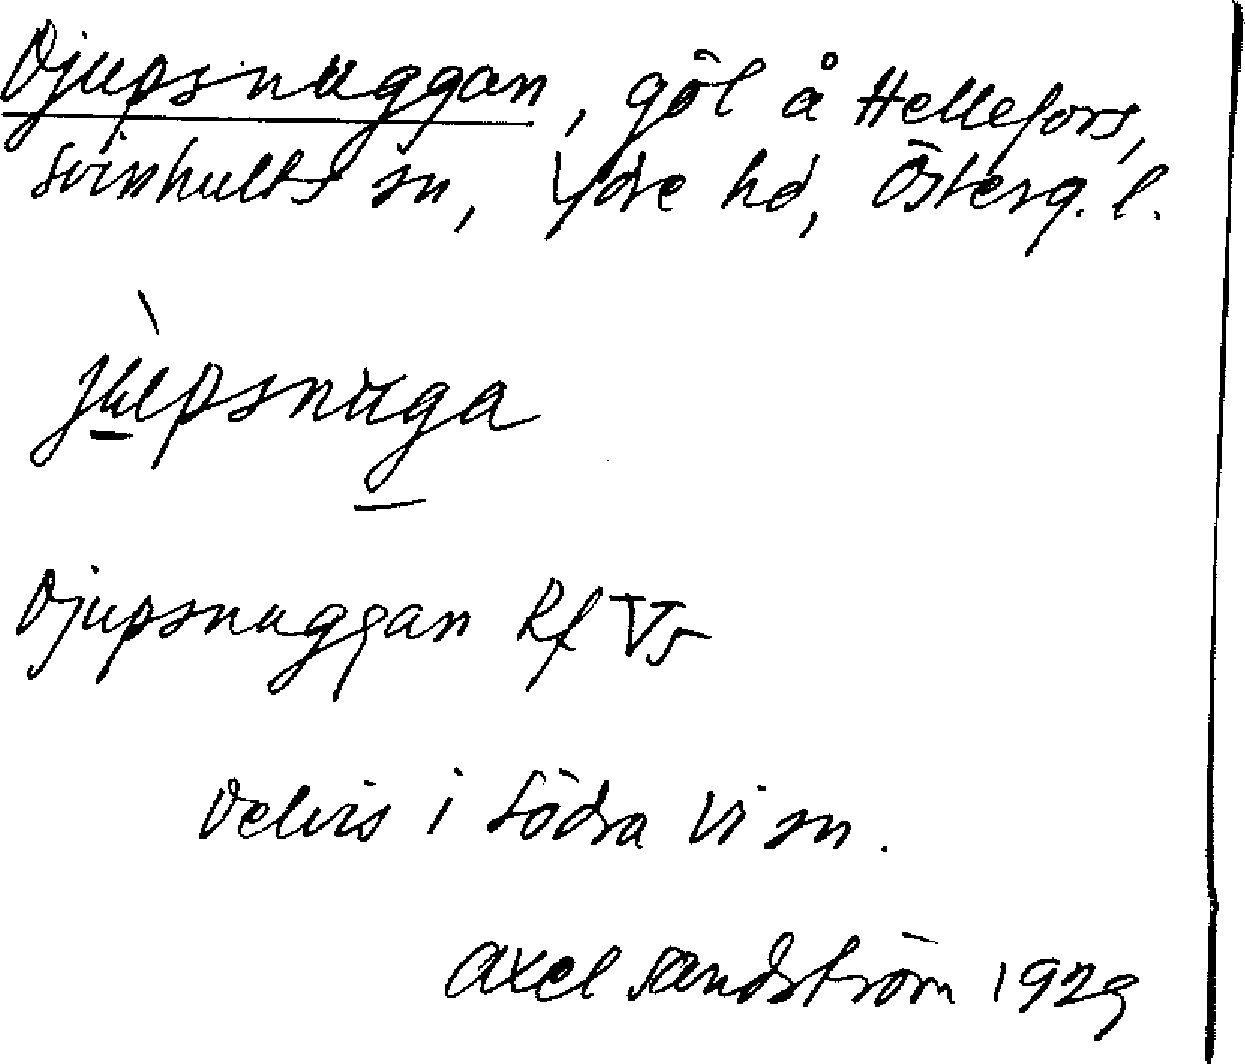 Djupsnuggan, göl å Hellefors,
Svinhults sn, Ydre hd, Österg. l.
jùpsnuga
Djupsnuggan Rf V5
Delvis i Södra Vi sn.
Axel Sandström 1929